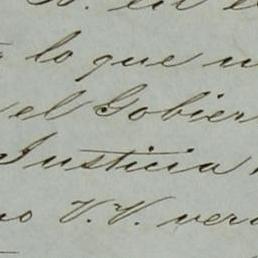 lo que
el Gobier
Justicia
V. V. ver